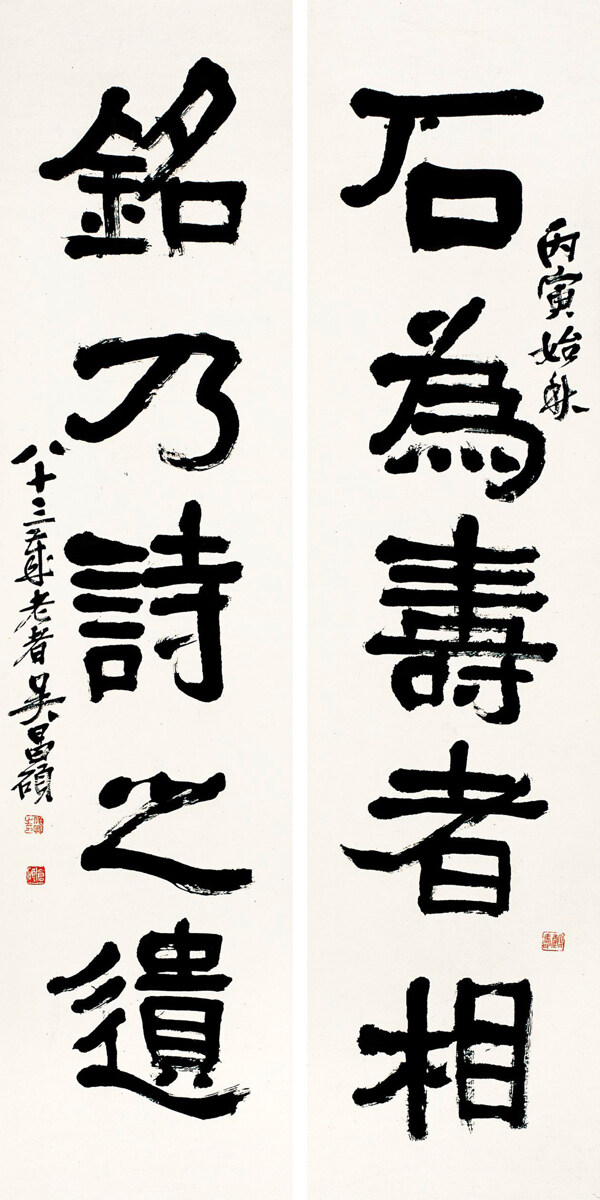 石為壽者相
丙寅始秋
銘乃詩之遺
八十三歲老者吳昌碩